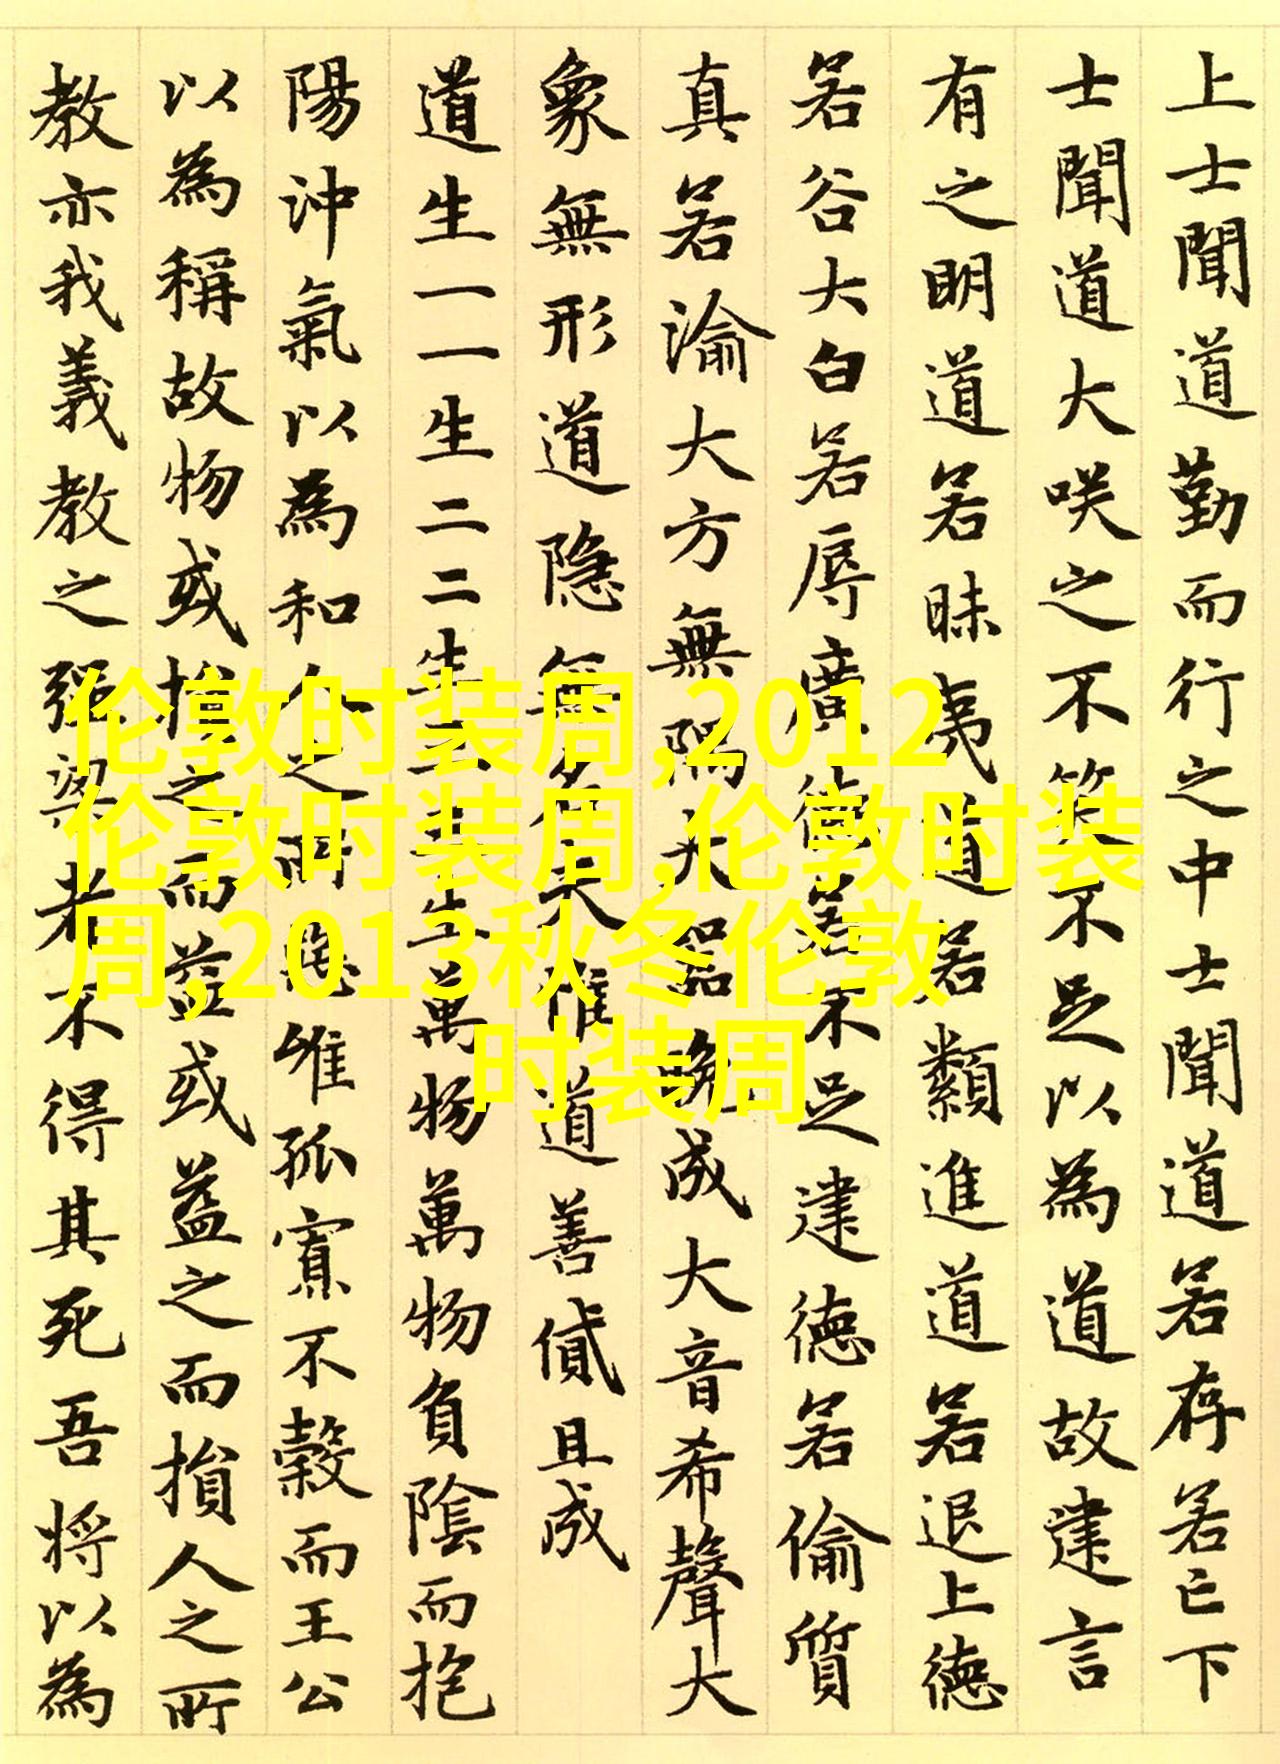 上士聞道勤而行之中士聞道若存若亡下
士聞道大咲之不笑不足以為道故建言
有之明道若昧夷道若纇進道若退上德
若谷大白若辱廣德若不足建德若偷質
真若渝大方無隅大器晚成大音希聲大
象無形道隐無名夫惟道善貸且成
道生一一生二二生三三生萬物萬物負陰而抱
陽沖氣以為和人之所惡唯孤寡不穀而王公
以為稱故物或損之而益或益之而損人之所
教亦我義教之强梁者不得其死吾将以為
伦敦时装周,2012
伦敦时装周,伦敦时装
周,2013秋冬伦敦
时装周